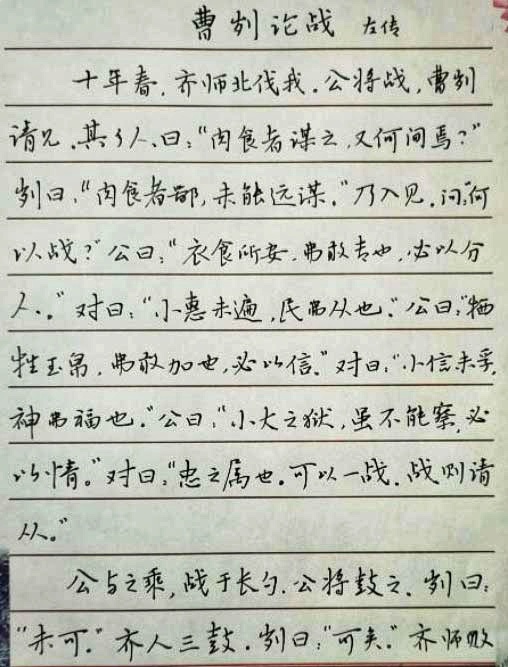 曹刿论战 左传
十年春,齐师北伐我。公将战,曹刿
请见。其乡人曰:“肉食者谋之,又何间焉?”
刿曰:“肉食者鄙,未能远谋。”乃入见。问:“何
以战?”公曰:“衣食所安,弗敢专也,必以分
人。”对曰:“小惠未遍,民弗从也。”公曰:“牺
牲玉帛,弗敢加也,必以信。”对曰:“小信未孚,
神弗福也。”公曰:“小大之狱,虽不能察,必
以情。”对曰:“忠之属也。可以一战。战则请
从。”
公与之乘,战于长勺。公将鼓之。刿曰:
“未可。”齐人三鼓。刿曰:“可矣。”齐师败